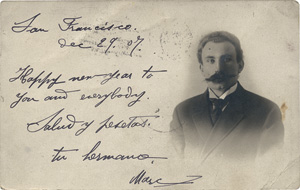 San Francisco.
Dec 29. '07.
Happy new year to
you and everybody.
Salud y pesetas.
tu hermano.
Marc